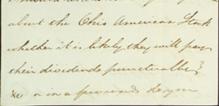 about the Ohio American Stock
whether it is likely they will pay
their dividends punctually &
in a